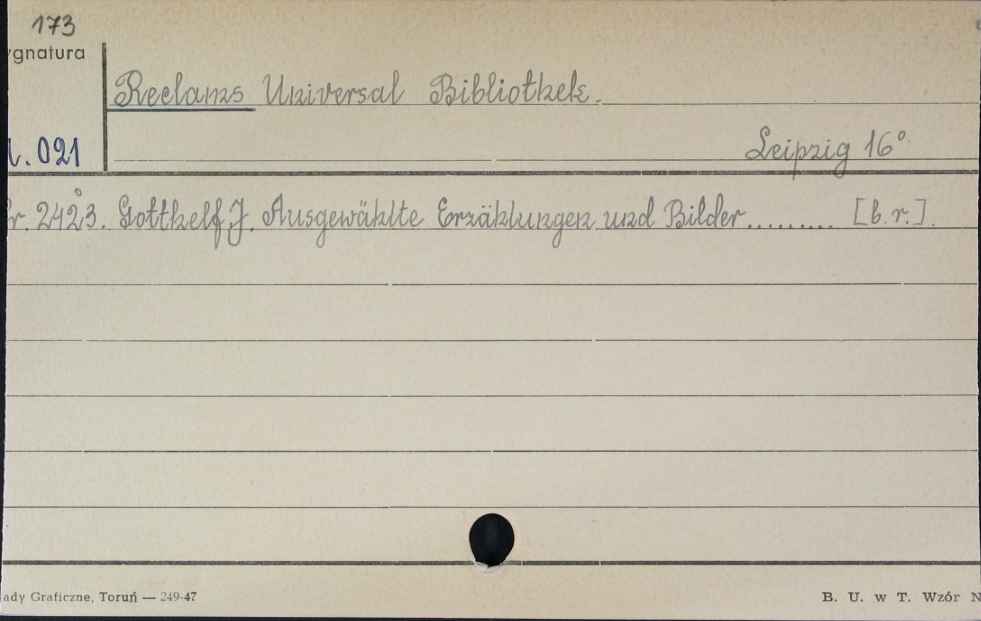 173
ygnatura
Reclams Universal Bibliothek.
. 021
Leipzig 16°
r. 2423. Gotthelf J. Ausgewählte Erzählungen und Bilder......... [b.r.].
ady Graficzne, Toruń — 249-47
B. U. w T. Wzór N